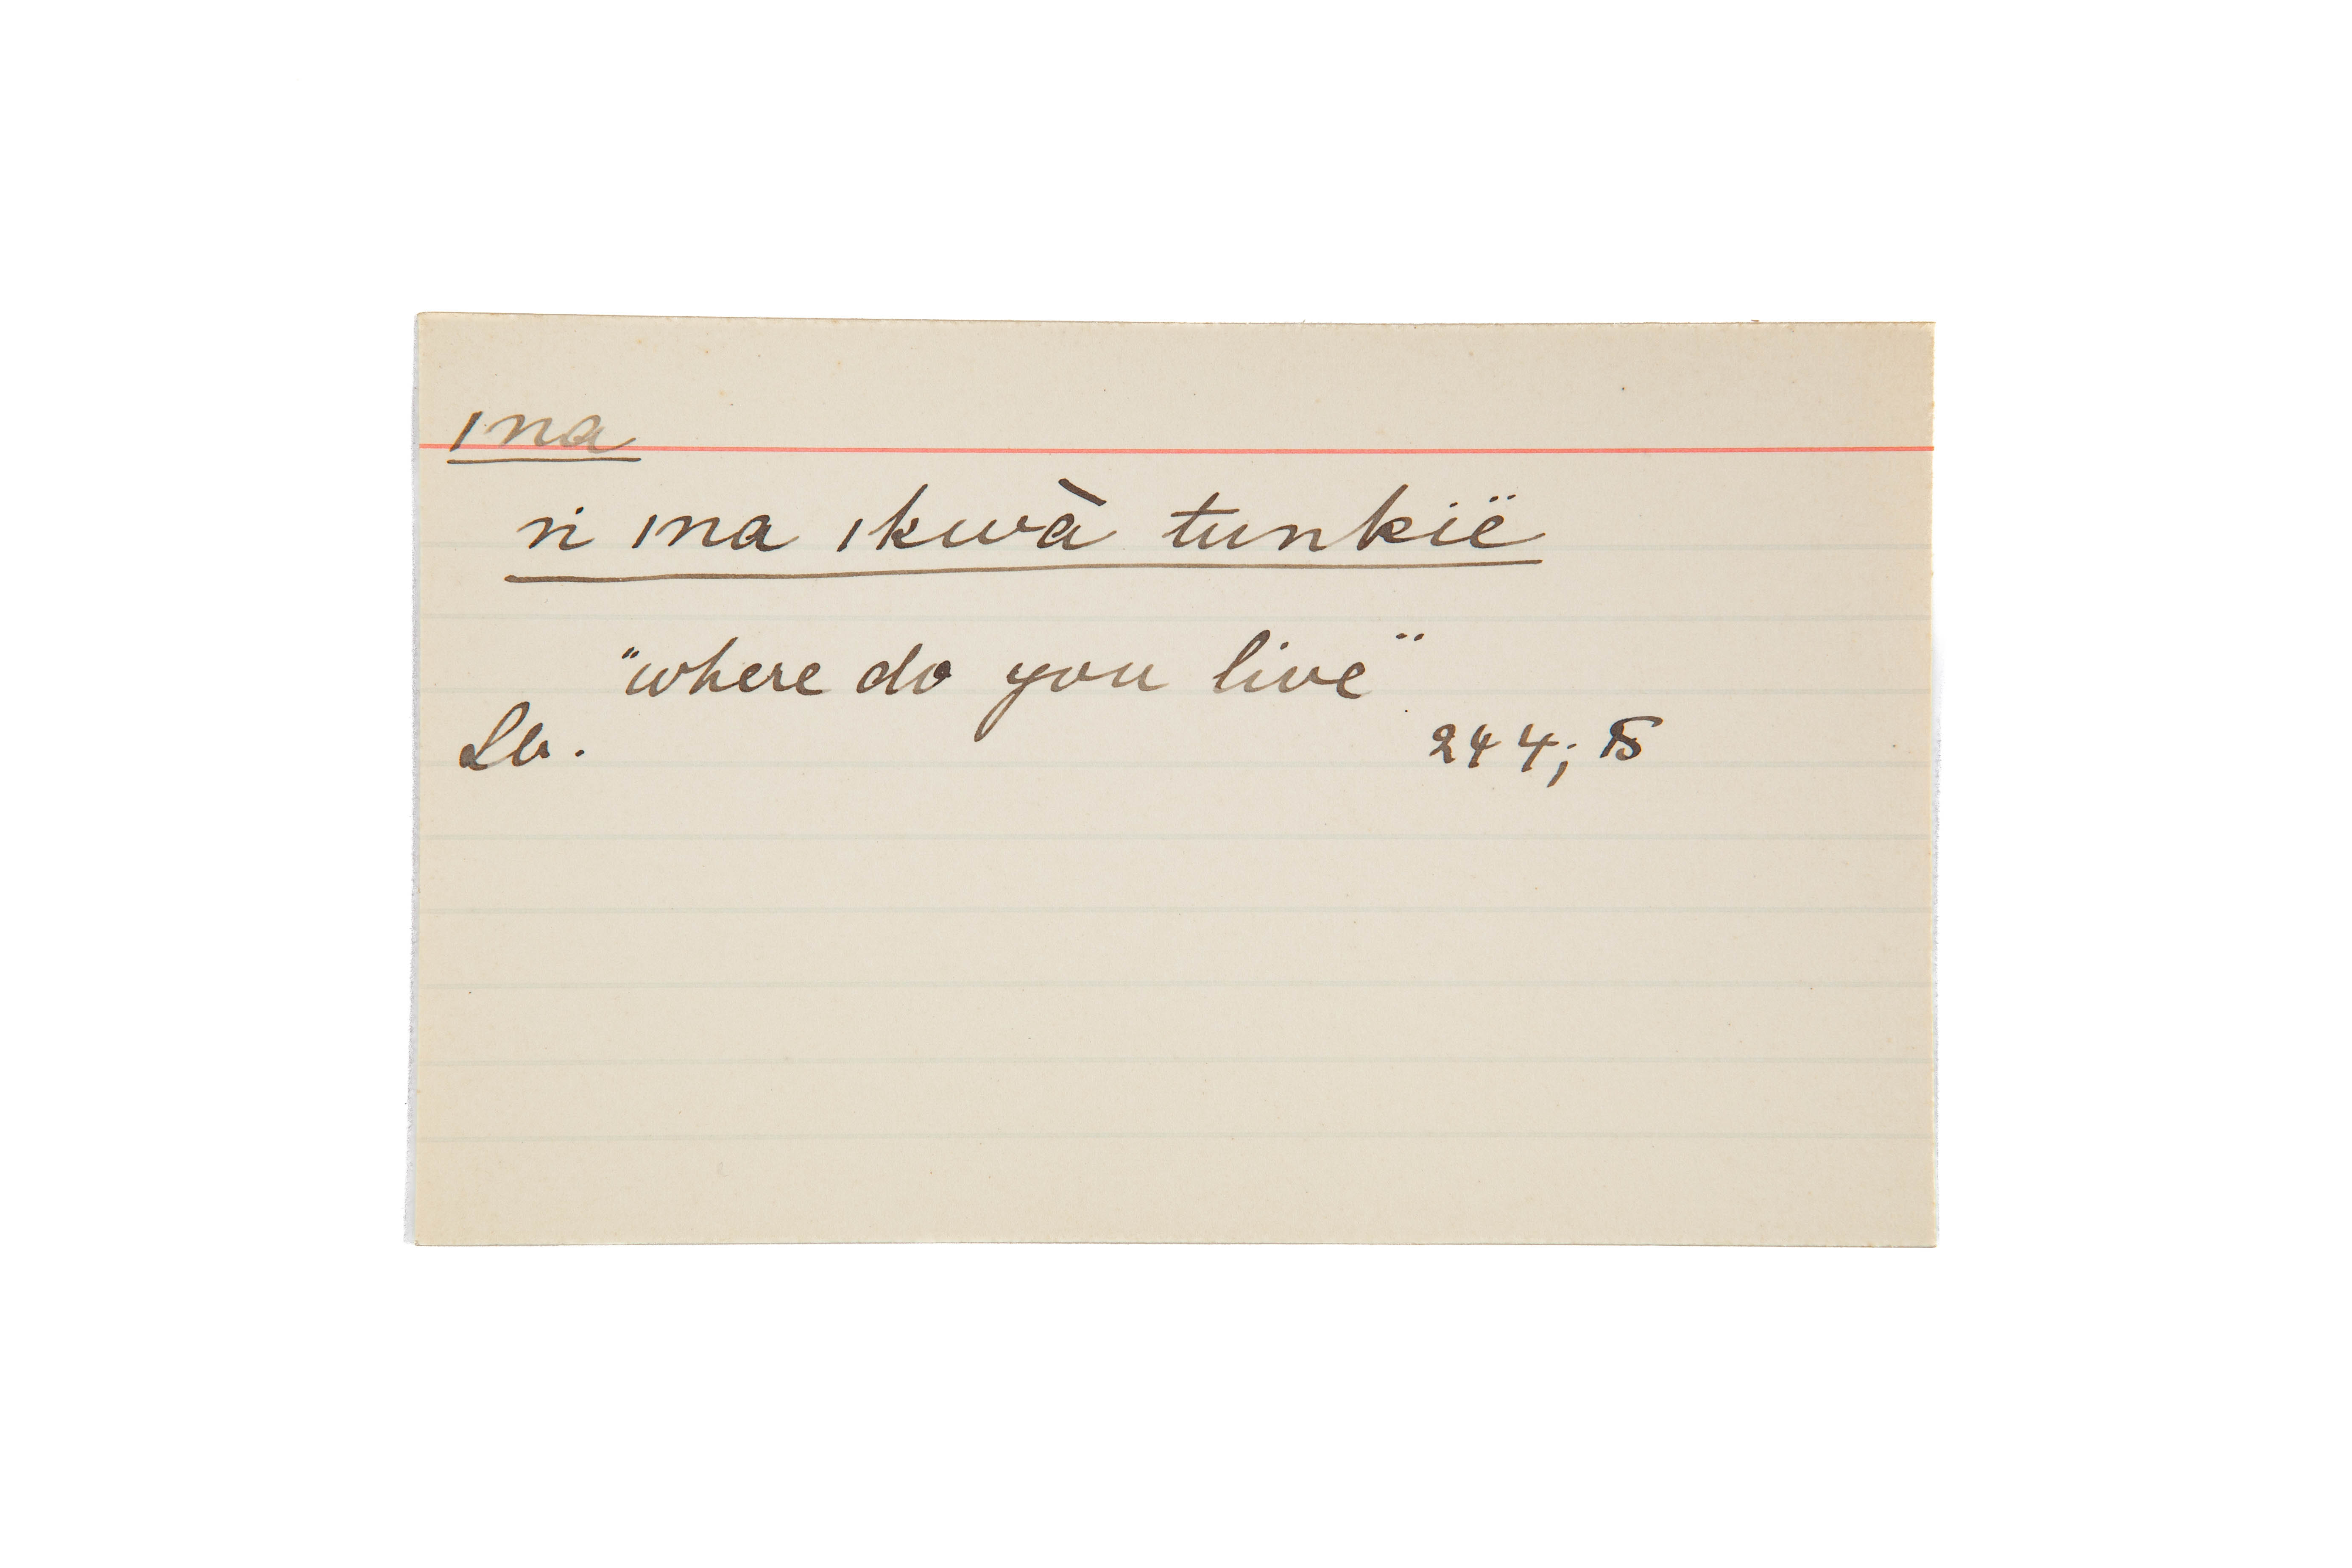 ına
ni ına ıkwà tunkië
"where do you live"
Lb. 244; 15